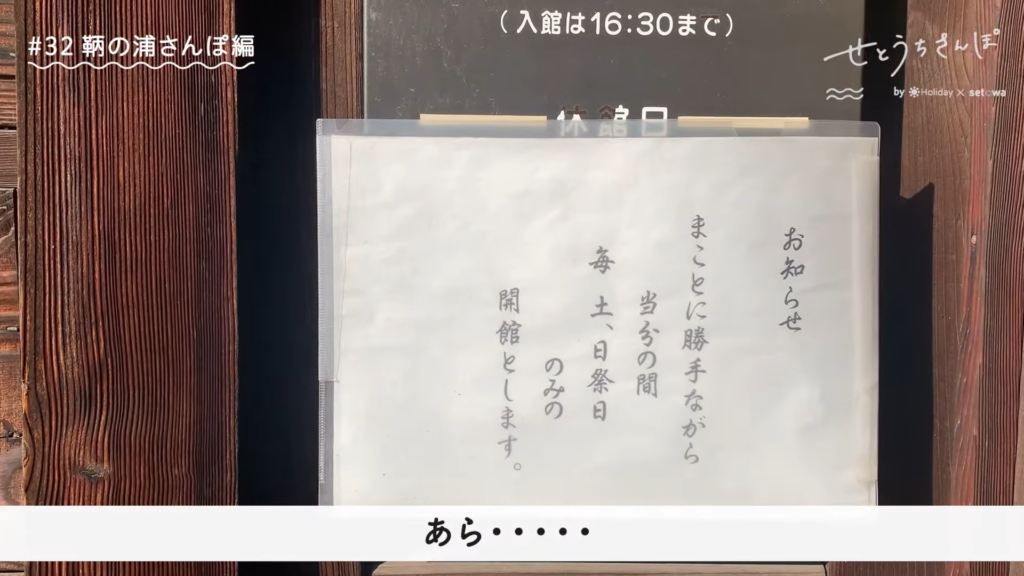 #32 鞆の浦さんぽ編
(入館は16:30まで)
せとうちさんぽ
by Holiday × setowa
休館日
お知らせ
まことに勝手ながら
当分の間
毎 土、日祭日
のみの
開館とします。
あら・・・・・